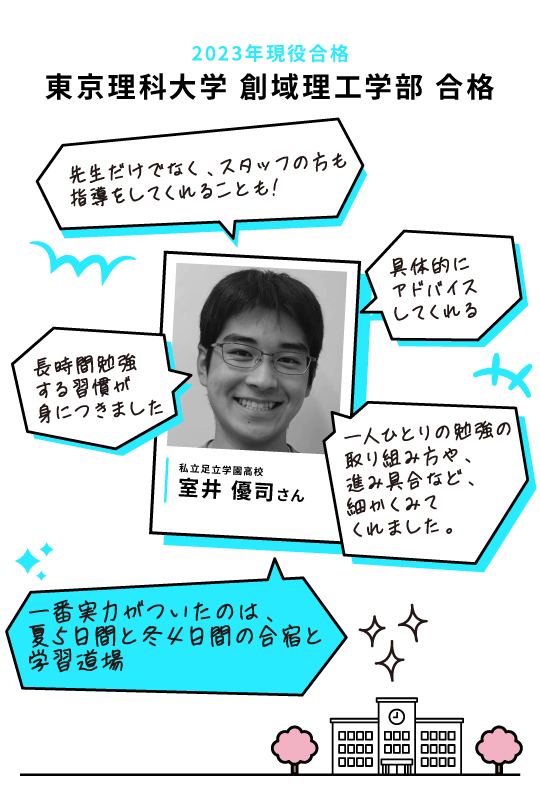 2023年現役合格
東京理科大学 創域理工学部 合格
先生だけでなく、スタッフの方も
指導をしてくれることも!
具体的に
アドバイス
してくれる
長時間勉強
する習慣が
身につきました
一人ひとりの勉強の
取り組み方や、
進み具合など、
細かくみて
くれました。
私立足立学園高校
室井 優司さん
一番実力がついたのは、
夏5日間と冬4日間の合宿と
学習道場